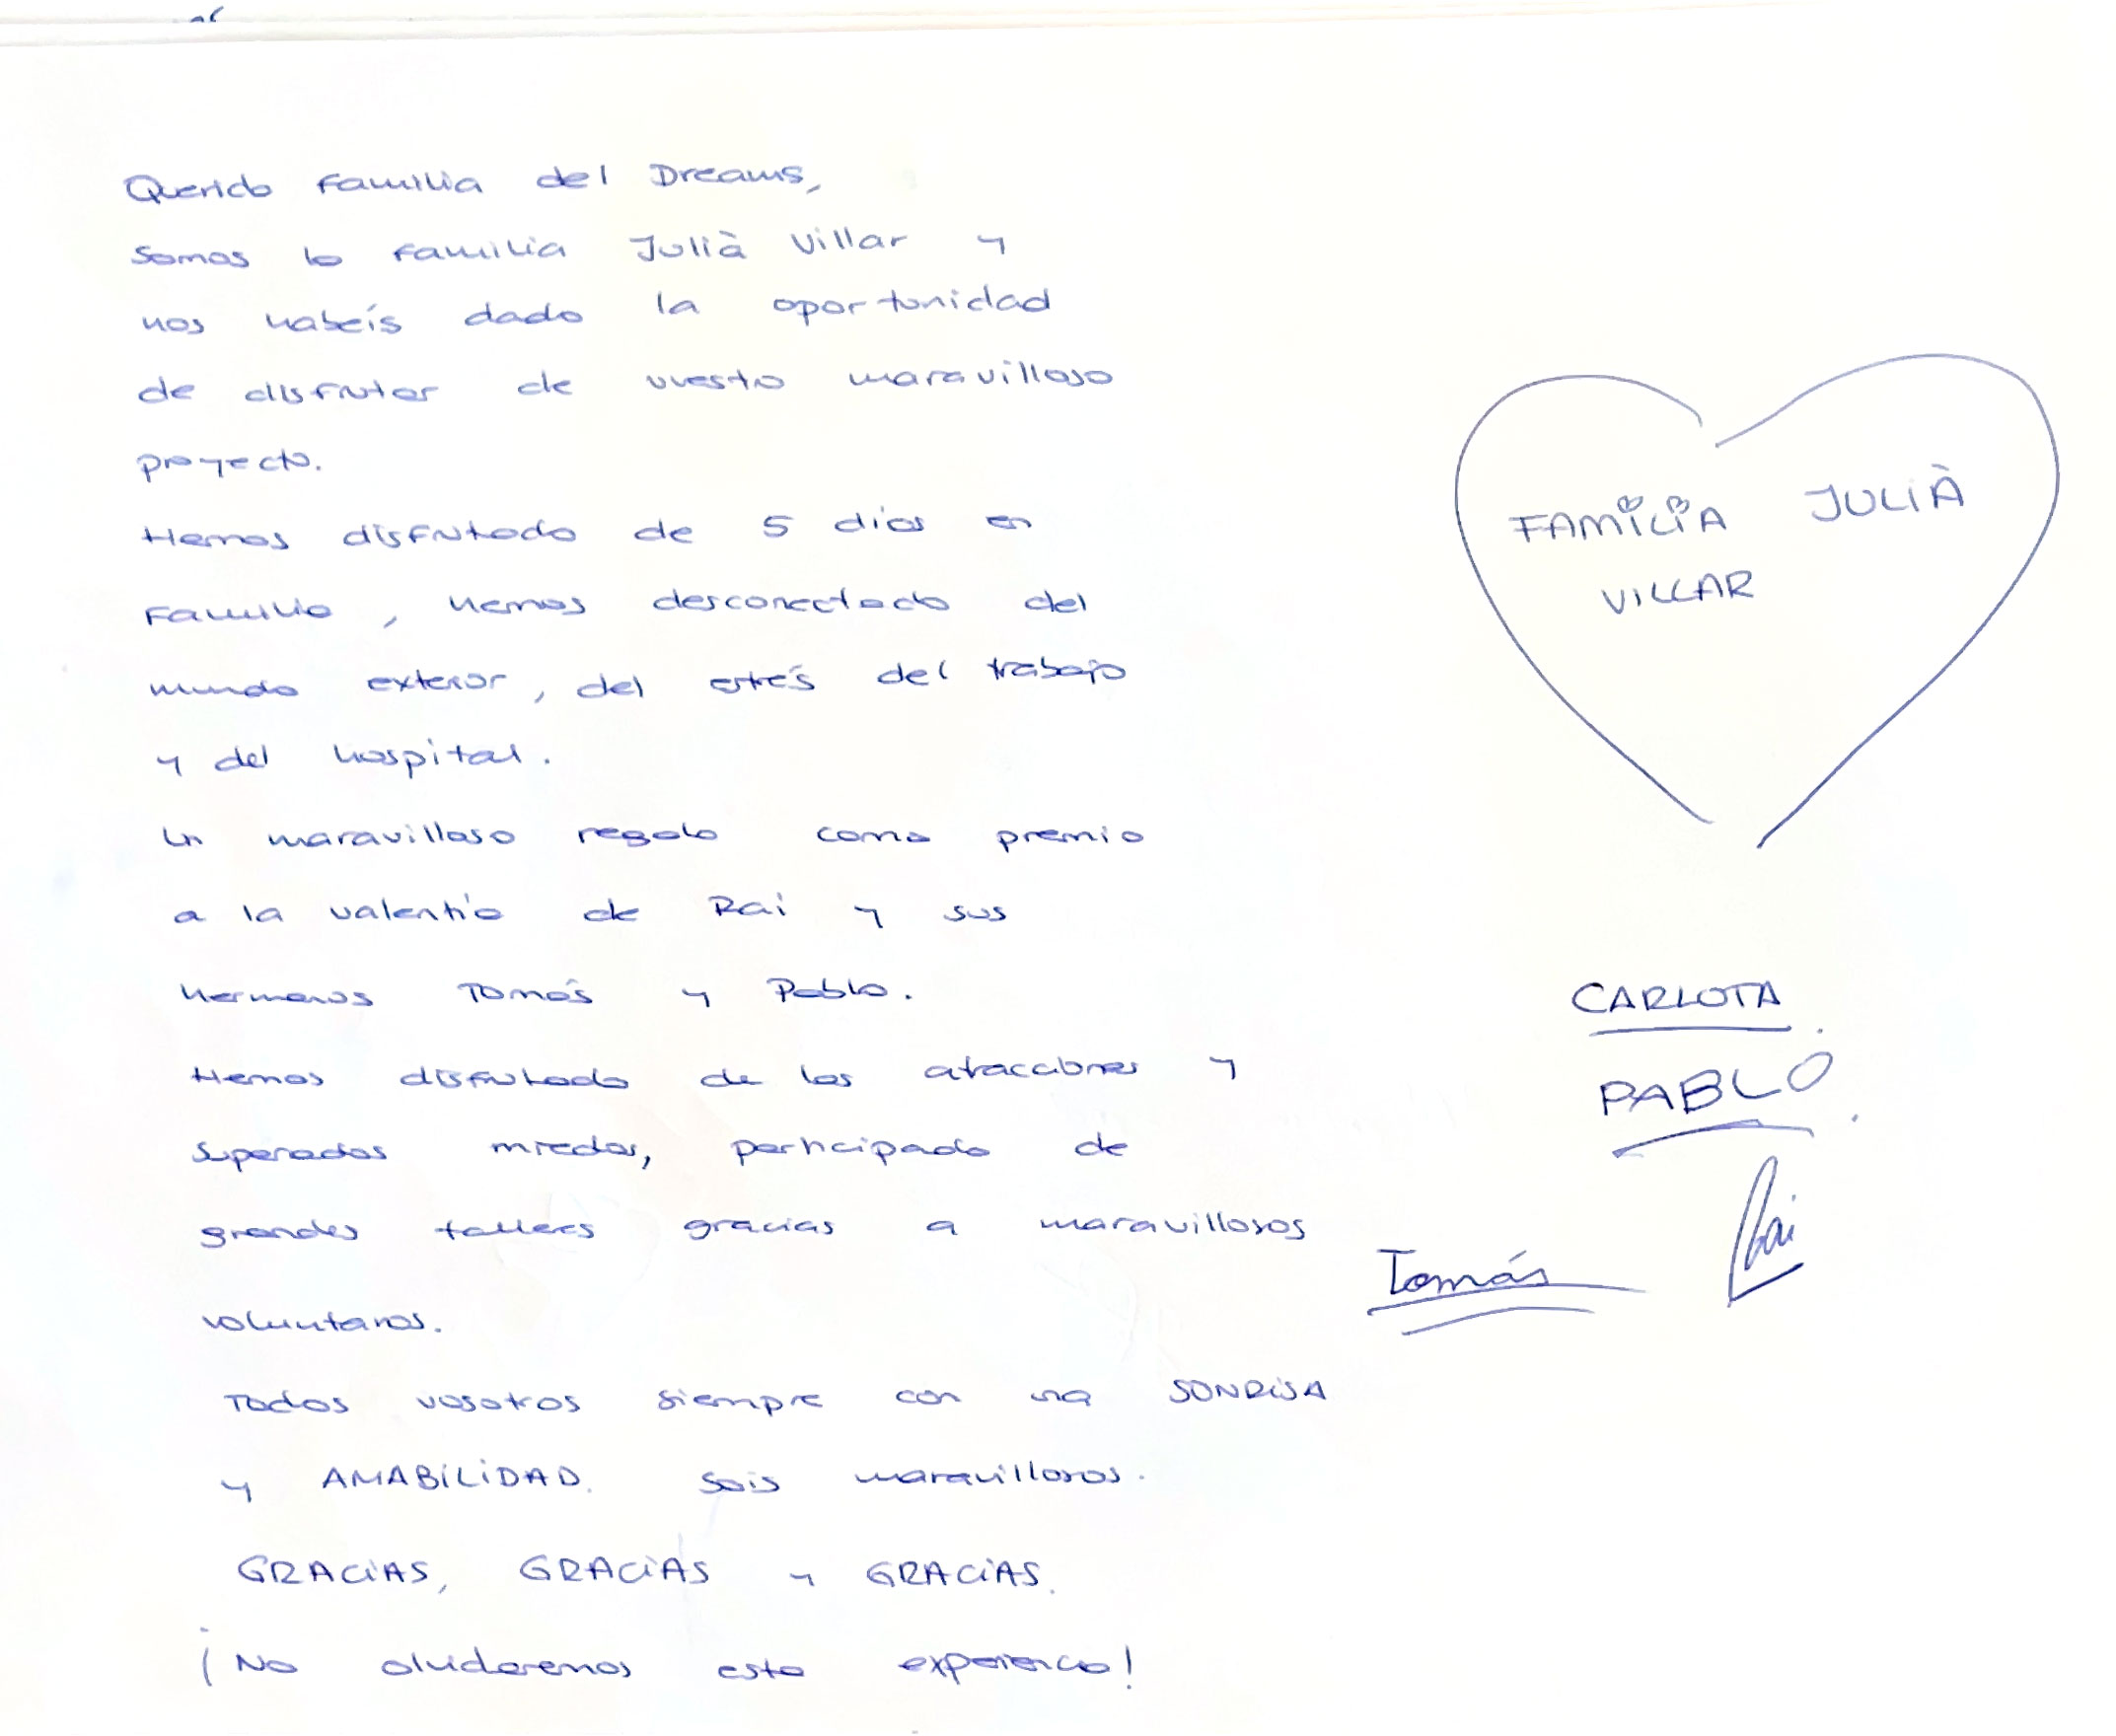 Querida familia del Dreams,
somos la familia Julià Villar y
nos habeís dado la oportunidad
de disfrutar de vuestro maravilloso
proyecto.
Hemos disfrutado de 5 días en
familia, hemos desconectado del
mundo exterior, del estrés del trabajo
y del hospital.
Un maravilloso regalo como premio
a la valentía de Rai y sus
hermanos Tomás y Pablo.
Hemos disfrutado de las atracciones y
superados miedos, participado de
grandes talleres gracias a maravillosos
voluntarios.
Todos vosotros siempre con una SONRISA
y AMABILIDAD. Sois maravillosos.
GRACIAS, GRACIAS y GRACIAS.
¡No olvidaremos esta experiencia!
FAMILIA JULIÀ
VILLAR
CARLOTA
PABLO
Rai
Tomás